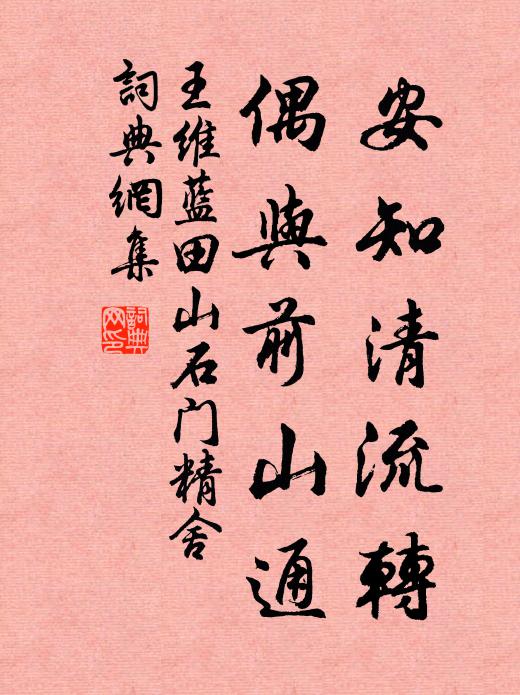 安知清流轉
偶與前山通
王維蓝田山石门精舍
詞典網集
詞典网印